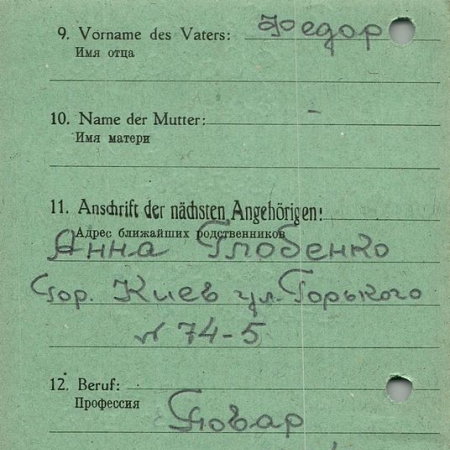 9. Vorname des Vaters: Федор
Имя отца
10. Name der Mutter:
Имя матери
11. Anschrift der nächsten Angehörigen:
Адрес ближайших родственников
Анна Глобенко
Гор. Киев ул. Горького
№ 74-5
12. Beruf:
Профессия
Повар